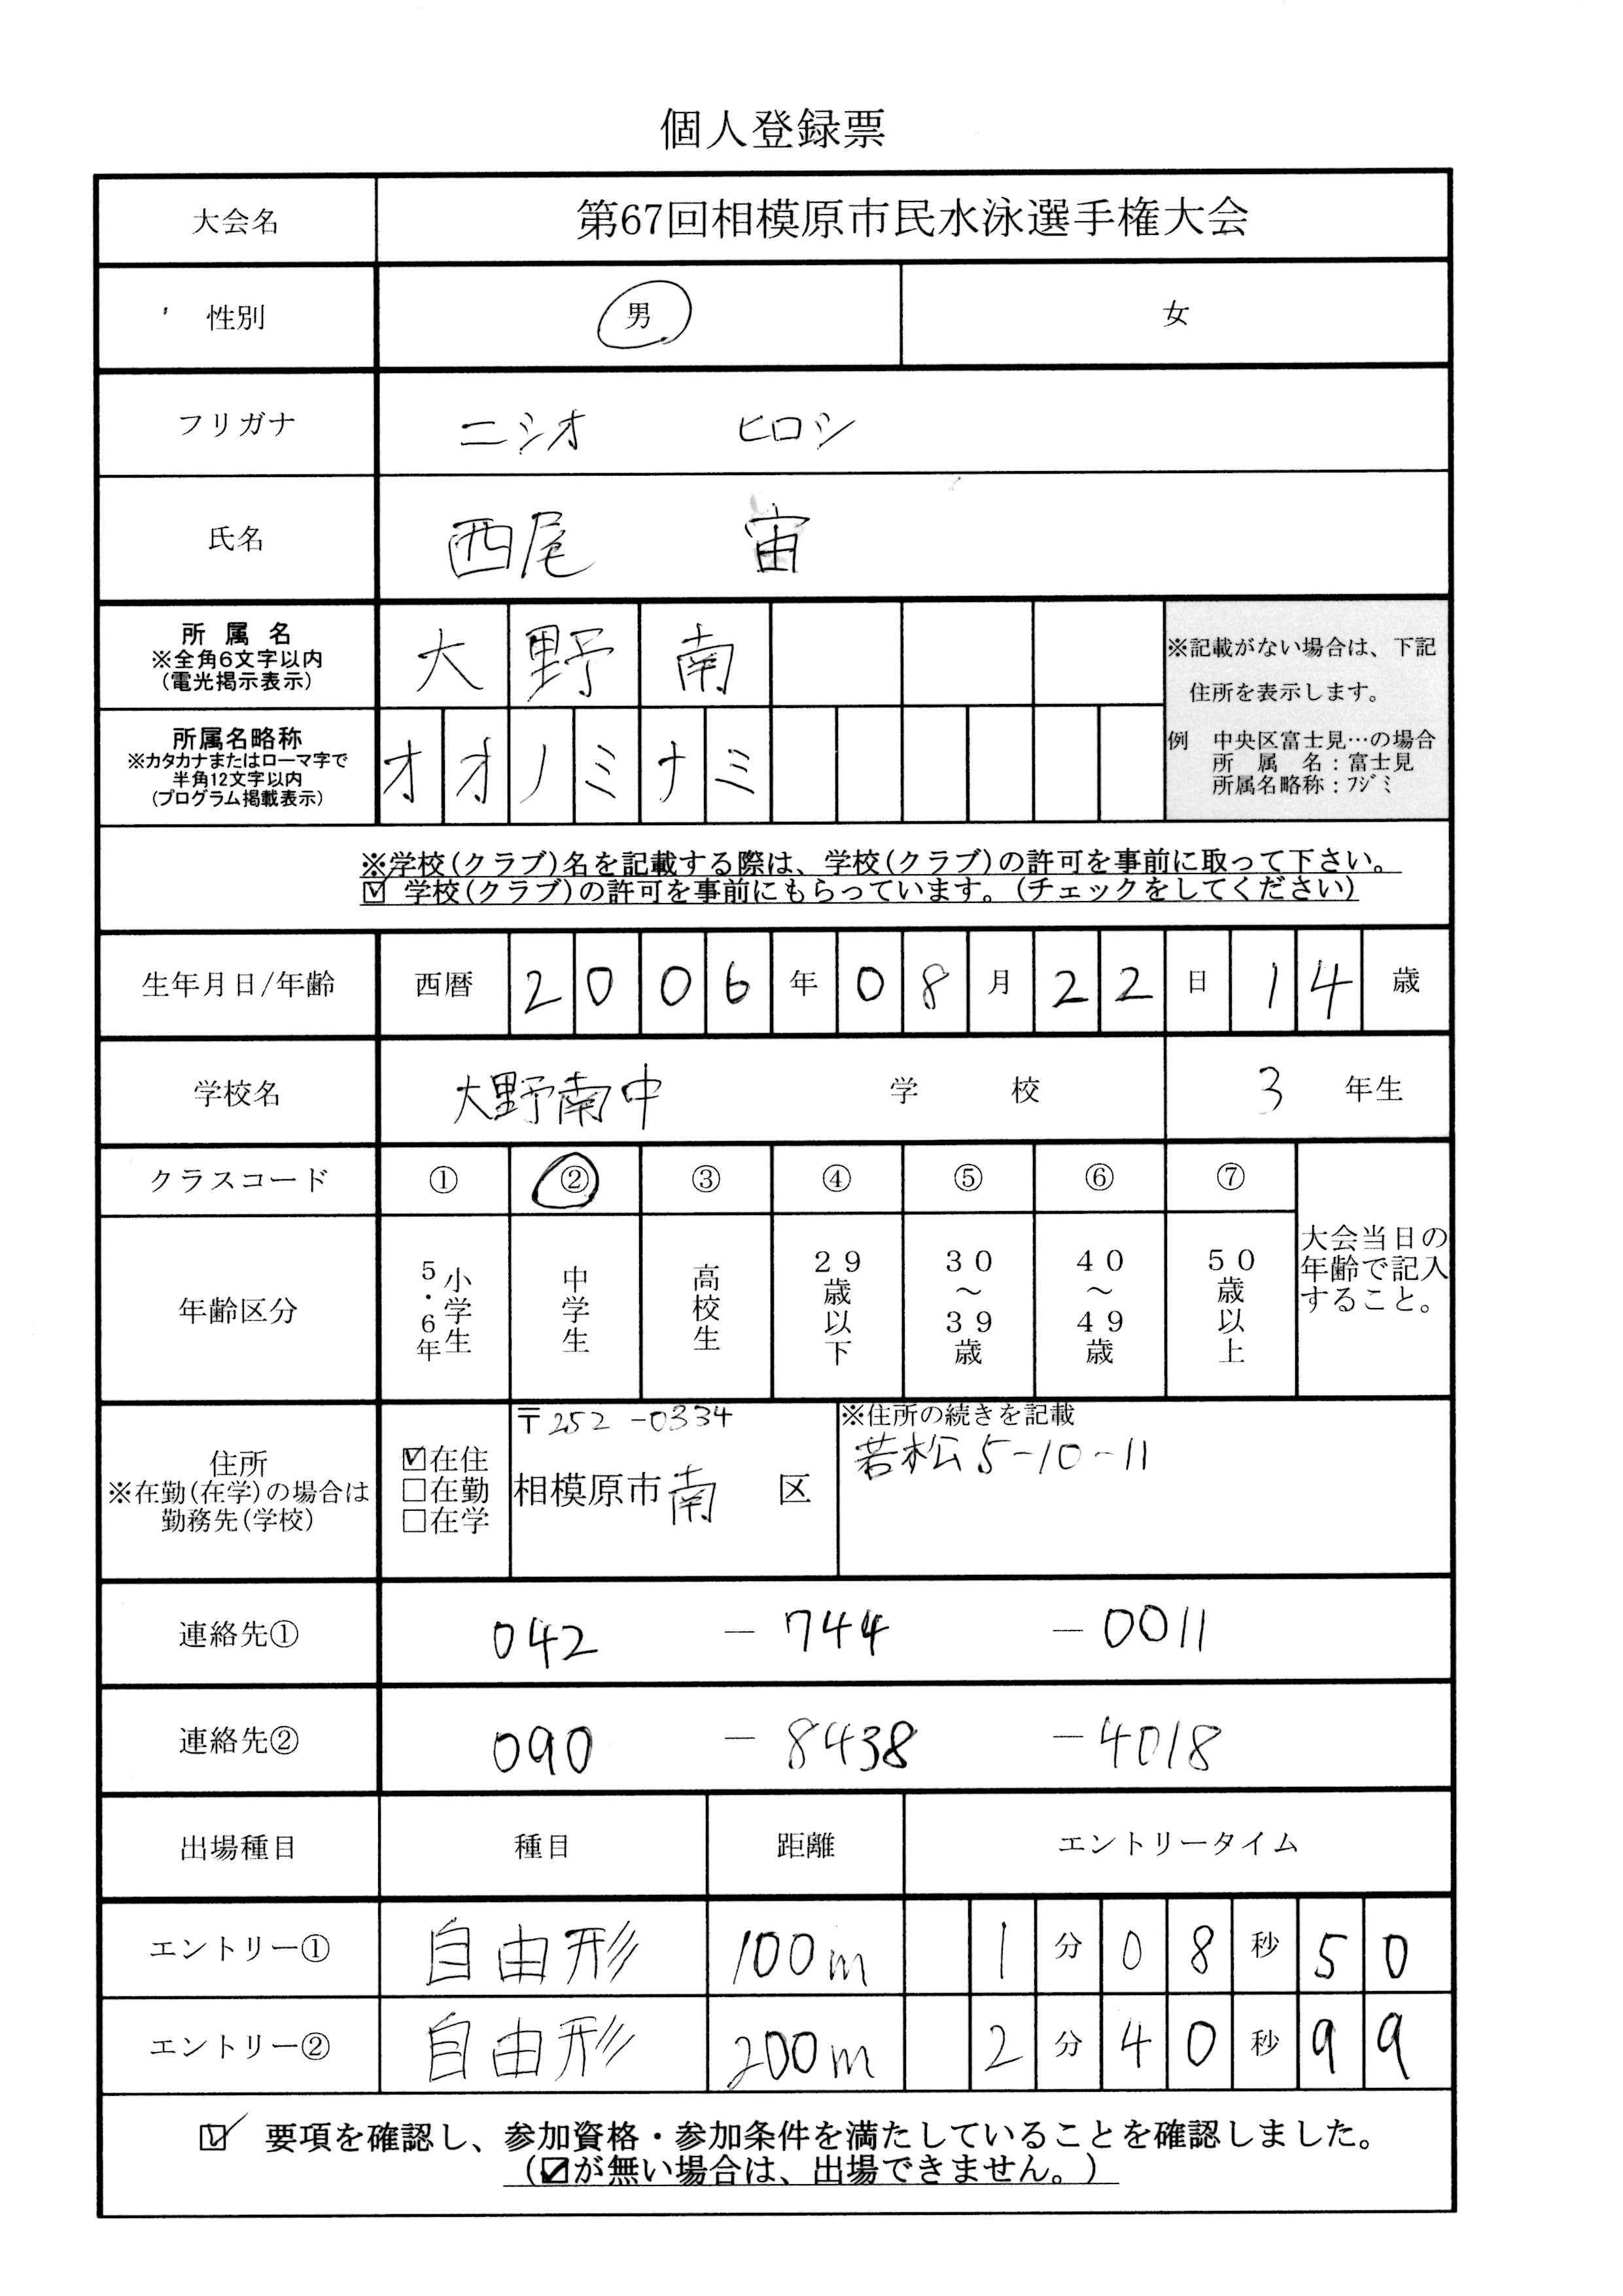 個人登録票
大会名 第67回相模原市民水泳選手権大会
性別 男 女
フリガナ ニシオ ヒロシ
氏名 西尾 宙
所属名 大野南
※全角6文字以内
(電光掲示表示)
※記載がない場合は、下記
住所を表示します。
所属名略称 オオノミナミ
※カタカナまたはローマ字で
半角12文字以内
(プログラム掲載表示)
例 中央区富士見…の場合
所属名：富士見
所属名略称：ﾌｼﾞﾐ
※学校(クラブ)名を記載する際は、学校(クラブ)の許可を事前に取って下さい。
☑ 学校(クラブ)の許可を事前にもらっています。(チェックをしてください)
生年月日/年齢 西暦 2006年08月22日 14歳
学校名 大野南中 学校 3 年生
クラスコード ① ② ③ ④ ⑤ ⑥ ⑦
年齢区分 小学生5・6年 中学生 高校生 29歳以下 30～39歳 40～49歳 50歳以上
大会当日の
年齢で記入
すること。
住所
※在勤(在学)の場合は
勤務先(学校)
☑在住
□在勤
□在学
〒252-0334
相模原市南区
※住所の続きを記載
若松5-10-11
連絡先① 042 － 744 － 0011
連絡先② 090 － 8438 － 4018
出場種目 種目 距離 エントリータイム
エントリー① 自由形 100m 1分08秒50
エントリー② 自由形 200m 2分40秒99
☑ 要項を確認し、参加資格・参加条件を満たしていることを確認しました。
(☑が無い場合は、出場できません。)